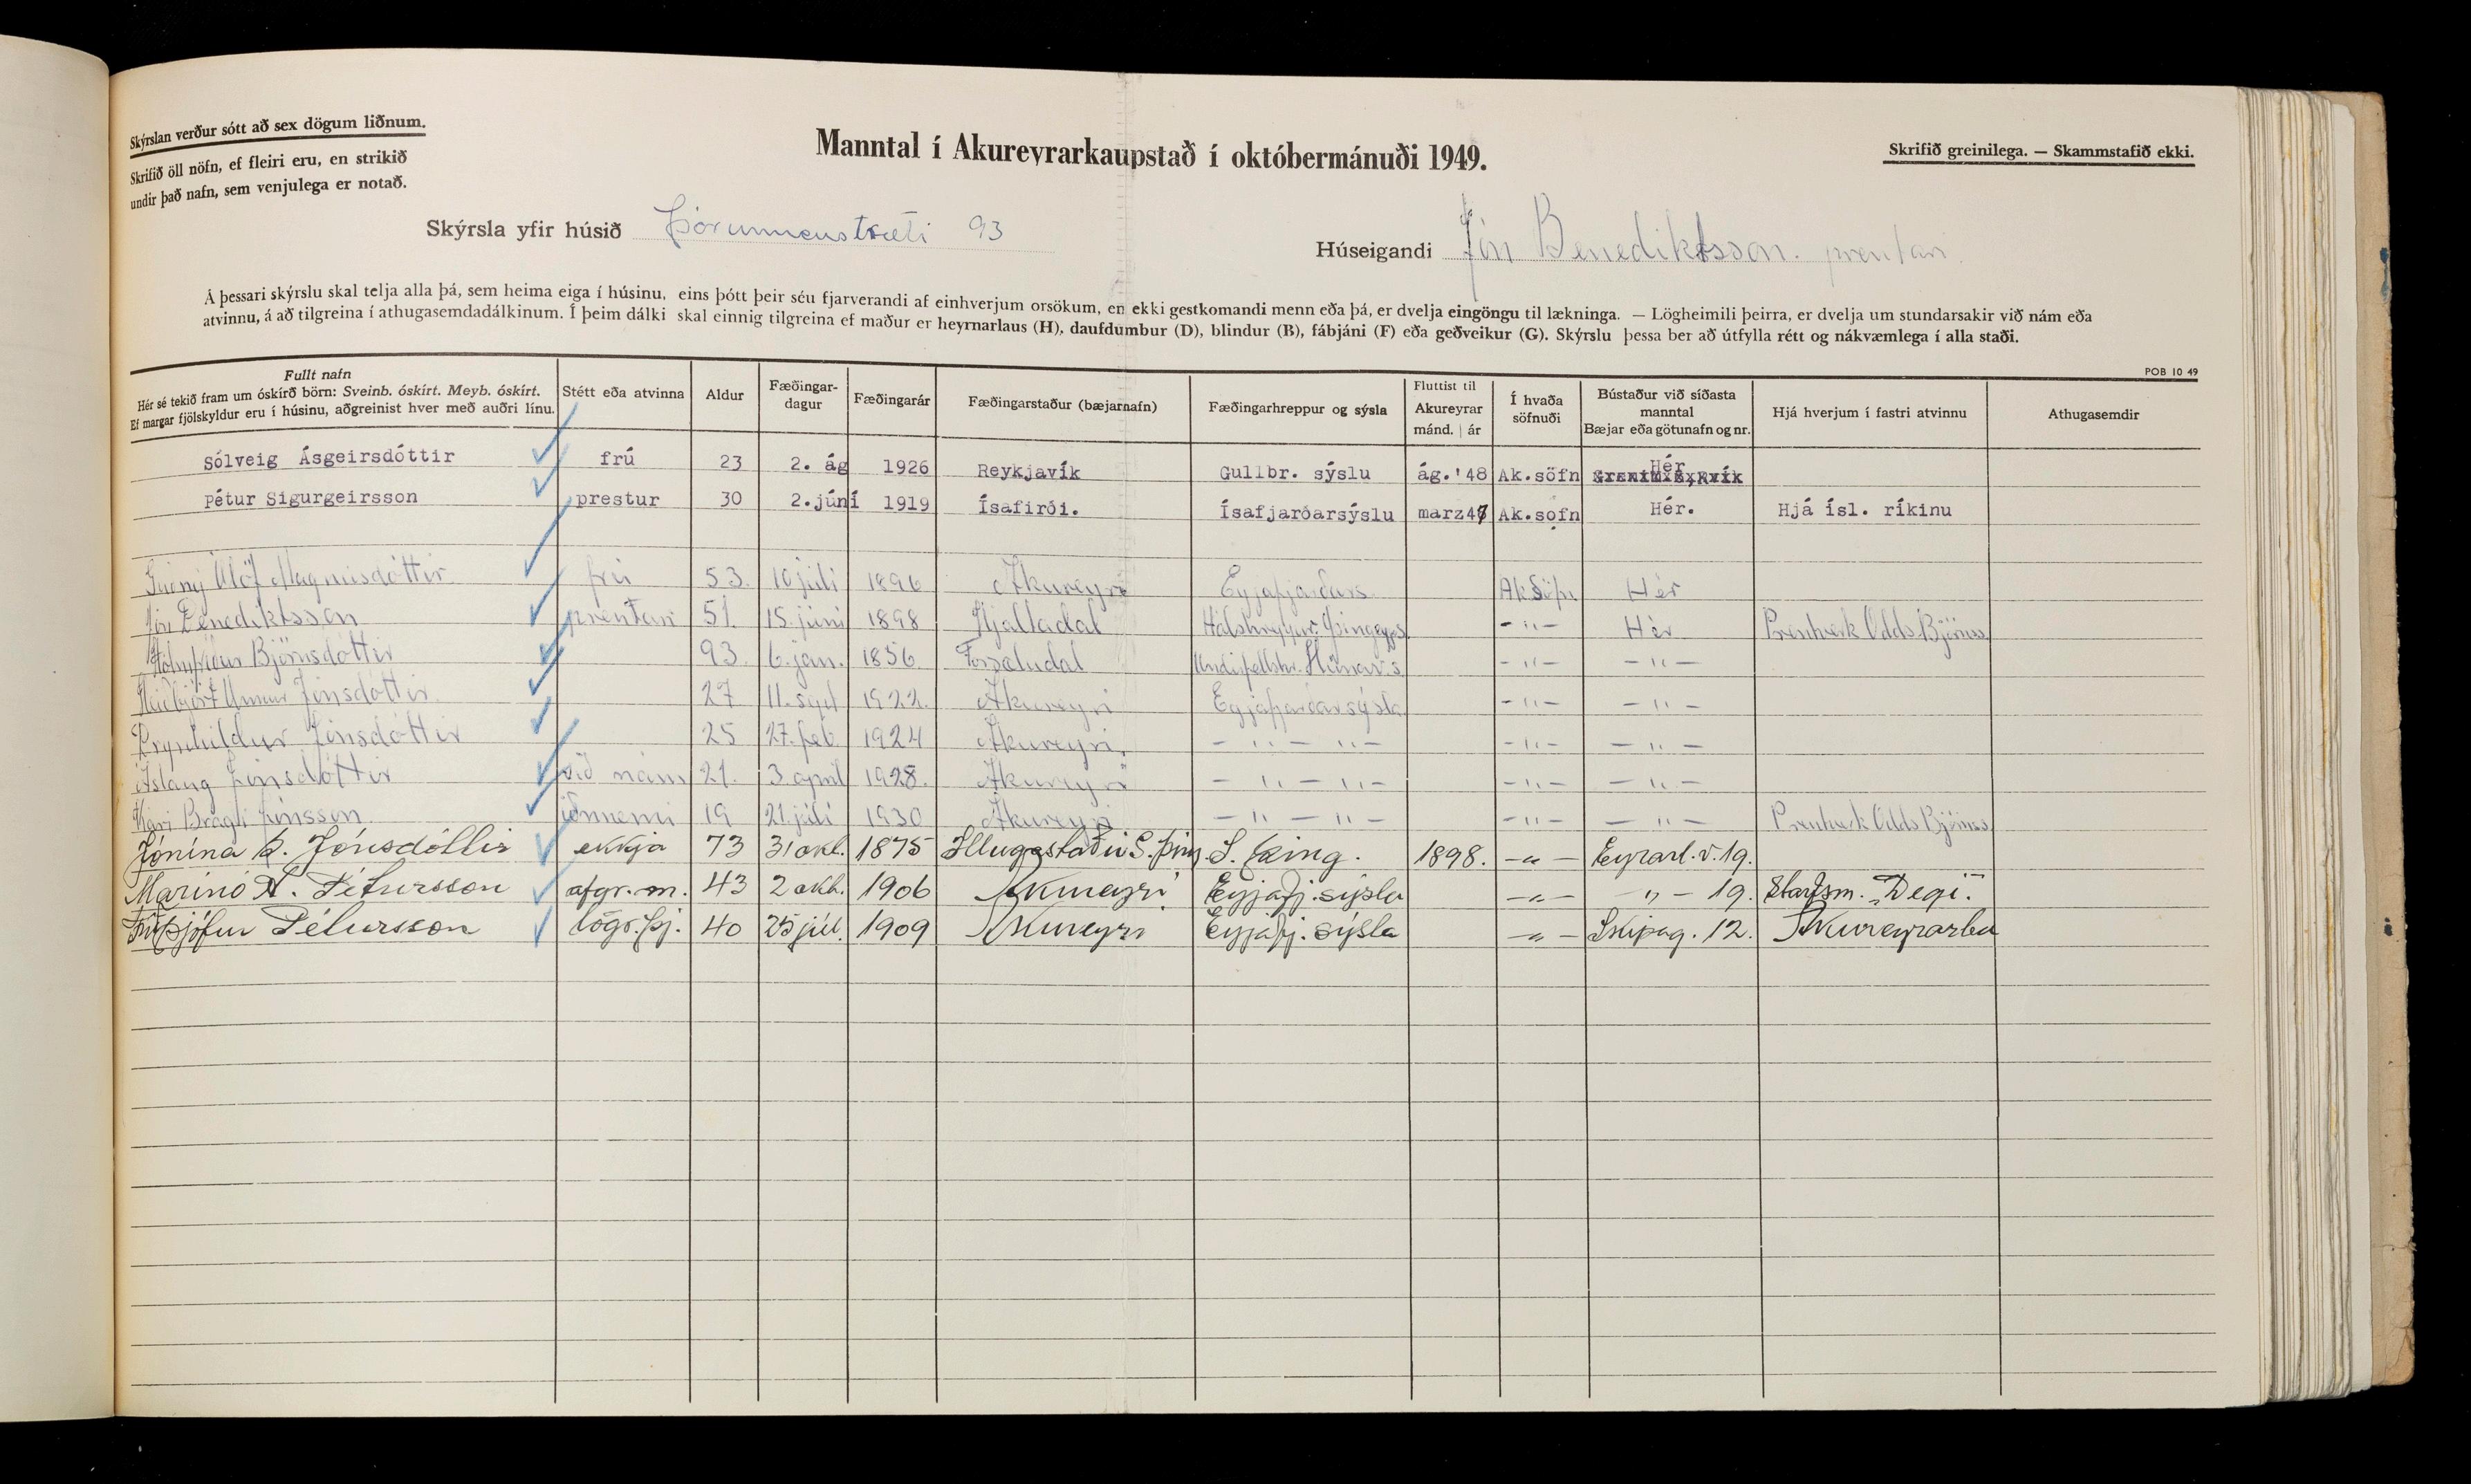 Skýrslan verður sótt að sex dögum liðnum.
Skrifið öll nöfn, ef fleiri eru, en strikið
undir það nafn, sem venjulega er notað.
Manntal í Akureyrarkaupstað í októbermánuði 1949.
Skrifið greinilega. — Skammstafið ekki.
Skýrsla yfir húsið Þórunnarstræti 93
Húseigandi Jón Benediktsson. prentari
Á þessari skýrslu skal telja alla þá, sem heima eiga í húsinu, eins þótt þeir séu fjarverandi af einhverjum orsökum, en ekki gestkomandi menn eða þá, er dvelja eingöngu til lækninga. — Lögheimili þeirra, er dvelja um stundarsakir við nám eða
atvinnu, á að tilgreina í athugasemdadálkinum. Í þeim dálki skal einnig tilgreina ef maður er heyrnarlaus (H), daufdumbur (D), blindur (B), fábjáni (F) eða geðveikur (G). Skýrslu þessa ber að útfylla rétt og nákvæmlega í alla staði.
POB 10 49
Fullt nafn
Hér sé tekið fram um óskírð börn: Sveinb. óskírt. Meyb. óskírt.
Ef margar fjölskyldur eru í húsinu, aðgreinist hver með auðri línu.
Stétt eða atvinna
Aldur
Fæðingar-
dagur
Fæðingarár
Fæðingarstaður (bæjarnafn)
Fæðingarhreppur og sýsla
Fluttist til
Akureyrar
mánd. | ár
Í hvaða
söfnuði
Bústaður við síðasta
manntal
Bæjar eða götunafn og nr.
Hjá hverjum í fastri atvinnu
Athugasemdir
Sólveig Ásgeirsdóttir frú 23 2. ág 1926 Reykjavík Gullbr. sýslu ág.'48 Ak.söfn Hér
Pétur Sigurgeirsson prestur 30 2.júní 1919 Ísafirði. Ísafjarðarsýslu marz47 Ak.sofn Hér. Hjá ísl. ríkinu
Guðný Ólöf Magnúsdóttir frú 53. 10 júlí 1896 Akureyri Eyjafjarðars. Ak söfn Hér
Jón Benediktsson prentari 51. 15. júní 1898 Hjaltadal Hálshreppur. Þingeyjs. - " - Hér Prentverk Odds Björnss
Hólmfríður Björnsdóttir 93. 6. jan. 1856 Forsæludal Undirfellshr. Húnav.s. - " - - " -
Heiðbjört Unnur Jónsdóttir 27 11. sept 1922. Akureyri Eyjafjarðarsýsla - " - - " -
Brynhildur Jónsdóttir 25 27. feb. 1924 Akureyri. - " - " - - " - - " -
Áslaug Jónsdóttir við nám 21. 3. apríl 1928. Akureyri - " - " - - " - - " -
Kári Bragi Jónsson iðnnemi 19 21. júlí 1930 Akureyri - " - " - - " - - " - Prentverk Odds Björnss
Jónína Þ. Jónsdóttir ekkja 73 31 okt. 1875 Illugastaðir S. Þing. S. Þing. 1898. - " - Eyrarl.v. 19.
Marinó A. Pétursson afgr.m. 43 2 okt. 1906 Akureyri Eyjafj. sýsla - " - " - 19. Starfsm. "Degi".
Friðþjófur Pétursson lögr.þj. 40 25 júl. 1909 Akureyri Eyjafj. sýsla - " - Skipag. 12. Akureyrarbæ